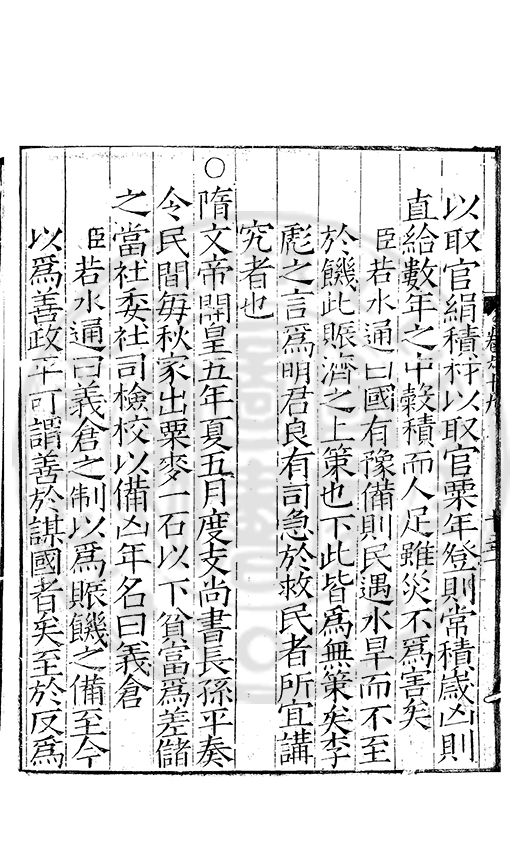 以取官絹積秆以取官粟年登則常積歲凶則
直給數年之中穀積而人足雖災不爲害矣
臣若水通曰國有豫備則民遇水旱而不至
於饑此賑濟之上策也下此皆爲無策矣李
彪之言爲明君良有司急於救民者所宜講
究者也
○隋文帝開皇五年夏五月度支尚書長孫平奏
令民間每秋家出粟麥一石以下貧富爲差儲
之當社委社司檢校以備凶年名曰義倉
臣若水通曰義倉之制以爲賑饑之備至今
以爲善政平可謂善於謀國者矣至於反爲